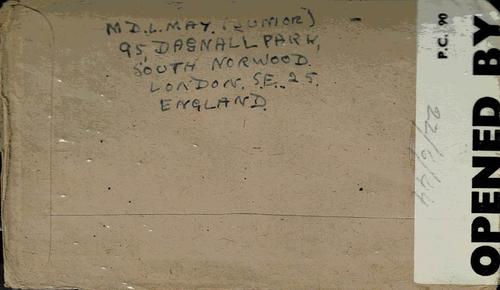 M D.L. MAY. (JUNIOR)
95, DAGNALL PARK,
SOUTH NORWOOD.
LONDON. S.E. 25.
ENGLAND.
P.C. 90
OPENED BY
22/6/44